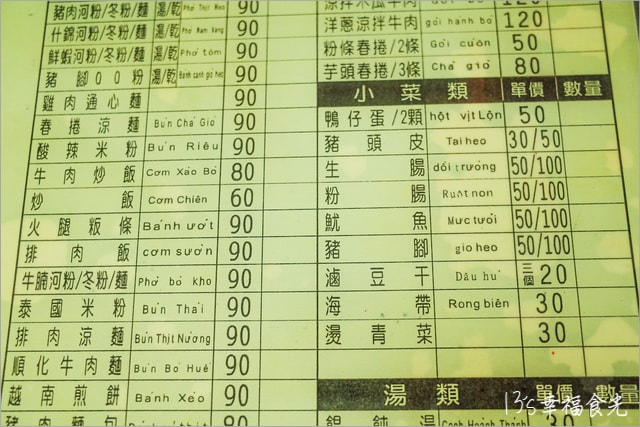 豬肉河粉/冬粉/麵 湯/乾 Phở Thịt Heo 90
什錦河粉/冬粉/麵 湯/乾 Phở Nam Vang 90
鮮蝦河粉/冬粉/麵 湯/乾 Phở tôm 90
豬腳QQ粉 湯/乾 Bánh canh giò heo 90
雞肉通心麵 90
春捲涼麵 Bún Chả Giò 90
酸辣米粉 Bún Riêu 90
牛肉炒飯 Cơm Xào Bò 80
炒飯 Cơm Chiên 60
火腿粄條 Bánh ướt 90
排肉飯 cơm sườn 90
牛腩河粉/冬粉/麵 Phở bò kho 90
泰國米粉 Bún Thái 90
排肉涼麵 Bún Thịt Nướng 90
順化牛肉麵 Bún Bò Huế 90
越南煎餅 Bánh Xèo 90
涼拌木瓜牛肉 120
洋蔥涼拌牛肉 gỏi hành bò 120
粉條春捲/2條 Gỏi cuốn 50
芋頭春捲/3條 Chả giò 80
小菜類 單價 數量
鴨仔蛋/2顆 hột vịt Lộn 50
豬頭皮 Tai heo 30/50
生腸 dồi trường 50/100
粉腸 Ruột non 50/100
魷魚 Mực tươi 50/100
豬腳 giò heo 50/100
滷豆干 Dậu hủ 三個 20
海帶 Rong biên 30
燙青菜 30
湯類 單價 數量
餛飩湯 Canh Hoành Thánh 30
13's幸福食光